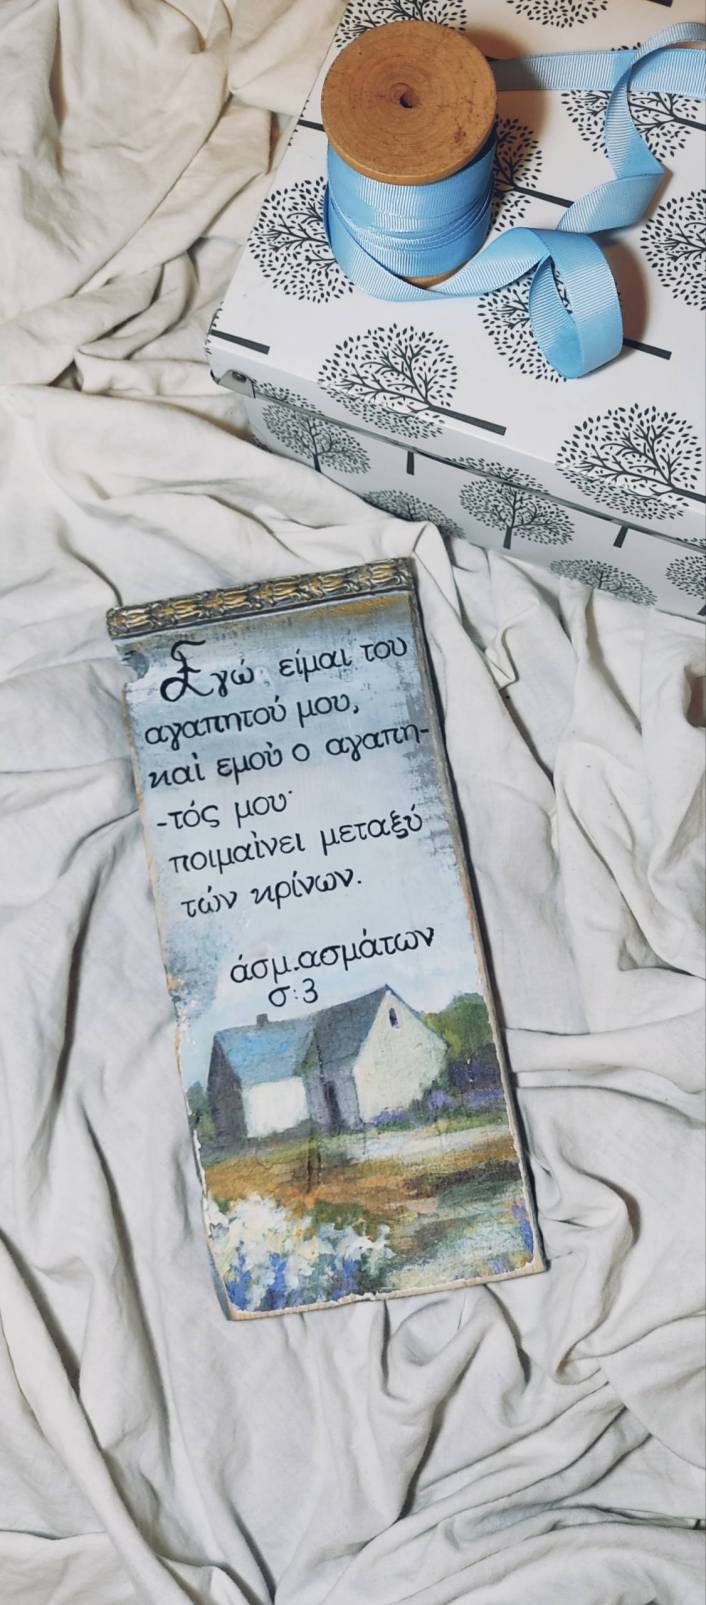 Εγώ είμαι του
αγαπητού μου,
καὶ εμοὺ ο αγαπη-
-τός μου·
ποιμαὶνει μεταξύ
τών κρίνων.
άσμ.ασμάτων
σ:3